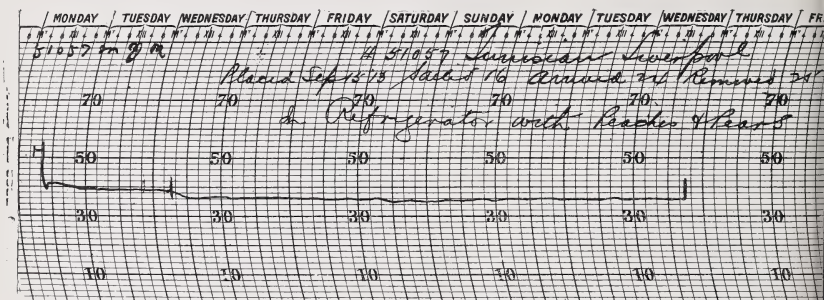 MONDAY TUESDAY WEDNESDAY THURSDAY FRIDAY SATURDAY SUNDAY MONDAY TUESDAY WEDNESDAY THURSDAY FR
51057 # 51057 Tunisian Liverpool
Placed Sep 15 Sailed 16 Arrived 24 Removed 25
70 70 70 70 70 70
In Refrigerator with Peaches & Pears
50 50 50 50 50 50
30 30 30 30 30 30
10 10 10 10 10 10